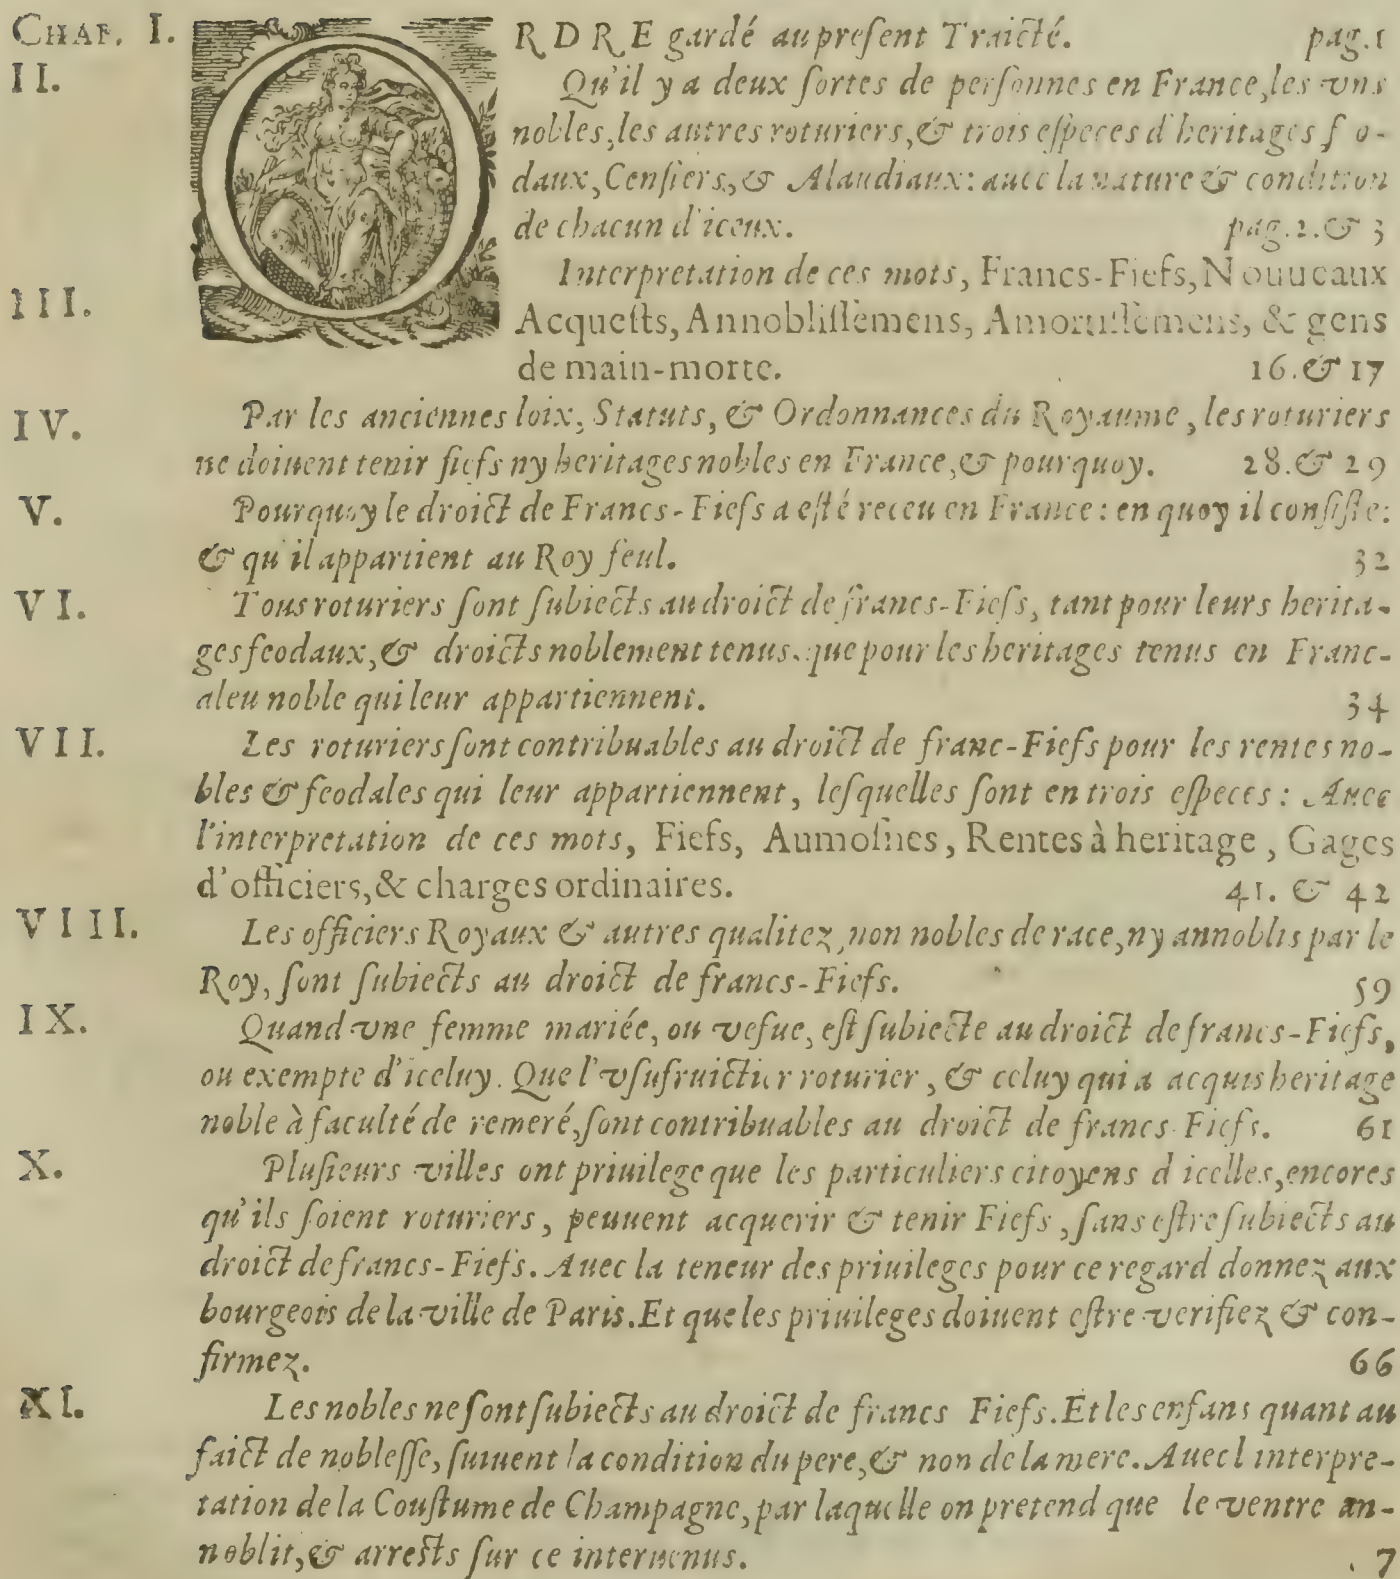 CHAP. I. ORDRE gardé au preſent Traicté. pag.1
II. Qu'il y a deux ſortes de perſonnes en France, les vns
nobles, les autres roturiers, & trois eſpeces d'heritages f o-
daux, Cenſiers, & Alaudiaux: auec la nature & condition
de chacun d'iceux. pag.2.& 3
Interpretation de ces mots, Francs-Fiefs, Nouueaux
III. Acqueſts, Annobliſſemens, Amortiſſemens, & gens
de main-morte. 16.& 17
IV. Par les anciennes loix, Statuts, & Ordonnances du Royaume, les roturiers
ne doiuent tenir fiefs ny heritages nobles en France, & pourquoy. 28.& 29
V. Pourquoy le droict de Francs-Fiefs a eſté receu en France: en quoy il conſiſte:
& qu'il appartient au Roy ſeul. 32
VI. Tous roturiers ſont ſubiects au droict de francs-Fiefs, tant pour leurs herita-
ges feodaux, & droicts noblement tenus, que pour les heritages tenus en Franc-
aleu noble qui leur appartiennent. 34
VII. Les roturiers ſont contribuables au droict de franc-Fiefs pour les rentes no-
bles & feodales qui leur appartiennent, leſquelles ſont en trois eſpeces: Auec
l'interpretation de ces mots, Fiefs, Aumoſnes, Rentes à heritage, Gages
d'officiers, & charges ordinaires. 41. & 42
VIII. Les officiers Royaux & autres qualitez, non nobles de race, ny annoblis par le
Roy, ſont ſubiects au droict de francs-Fiefs. 59
IX. Quand vne femme mariée, ou vefue, eſt ſubiecte au droict de francs-Fiefs,
ou exempte d'iceluy. Que l'vſufruictier roturier, & celuy qui a acquis heritage
noble à faculté de remeré, ſont contribuables au droict de francs Fiefs. 61
X. Pluſieurs villes ont priuilege que les particuliers citoyens d icelles, encores
qu'ils ſoient roturiers, peuuent acquerir & tenir Fiefs, ſans eſtre ſubiects au
droict de francs-Fiefs. Auec la teneur des priuileges pour ce regard donnez aux
bourgeois de la ville de Paris. Et que les priuileges doiuent eſtre verifiez & con-
firmez. 66
XI. Les nobles ne ſont ſubiects au droict de francs Fiefs. Et les enfans quant au
faict de nobleſſe, ſuiuent la condition du pere, & non de la mere. Auec l interpre-
tation de la Couſtume de Champagne, par laquelle on pretend que le ventre an-
noblit, & arreſts ſur ce interuenus. 7